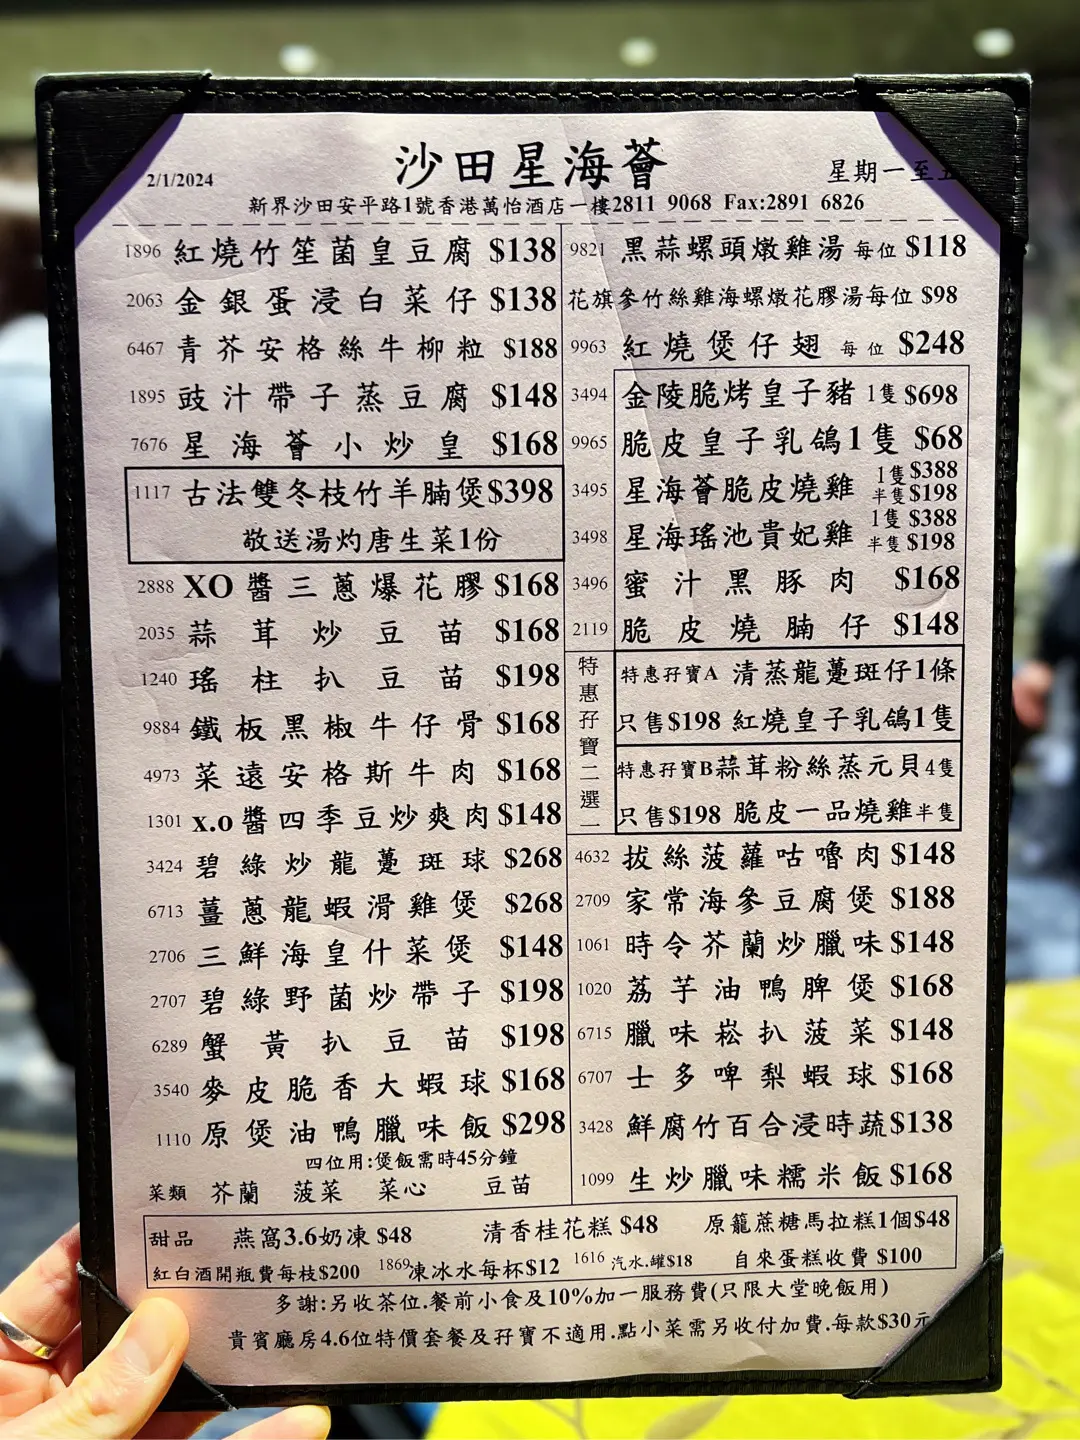 沙田星海薈
2/1/2024
星期一至五
新界沙田安平路1號香港萬怡酒店一樓2811 9068 Fax:2891 6826
1896 紅燒竹笙菌皇豆腐 $138
2063 金銀蛋浸白菜仔 $138
6467 青芥安格絲牛柳粒 $188
1895 豉汁帶子蒸豆腐 $148
7676 星海薈小炒皇 $168
1117 古法雙冬枝竹羊腩煲$398
敬送湯灼唐生菜1份
2888 XO醬三蔥爆花膠 $168
2035 蒜茸炒豆苗 $168
1240 瑤柱扒豆苗 $198
9884 鐵板黑椒牛仔骨 $168
4973 菜遠安格斯牛肉 $168
1301 x.o醬四季豆炒爽肉 $148
3424 碧綠炒龍躉斑球 $268
6713 薑蔥龍蝦滑雞煲 $268
2706 三鮮海皇什菜煲 $148
2707 碧綠野菌炒帶子 $198
6289 蟹黃扒豆苗 $198
3540 麥皮脆香大蝦球 $168
1110 原煲油鴨臘味飯 $298
四位用:煲飯需時45分鐘
菜類 芥蘭 菠菜 菜心 豆苗
9821 黑蒜螺頭燉雞湯 每位 $118
花旗參竹絲雞海螺燉花膠湯每位 $98
9963 紅燒煲仔翅 每位 $248
3494 金陵脆烤皇子豬 1隻 $698
9965 脆皮皇子乳鴿1隻 $68
3495 星海薈脆皮燒雞 1隻$388
半隻$198
3498 星海瑤池貴妃雞 1隻$388
半隻$198
3496 蜜汁黑豚肉 $168
2119 脆皮燒腩仔 $148
特惠孖寶二選一
特惠孖寶A 清蒸龍躉斑仔1條
只售$198 紅燒皇子乳鴿1隻
特惠孖寶B蒜茸粉絲蒸元貝4隻
只售$198 脆皮一品燒雞半隻
4632 拔絲菠蘿咕嚕肉 $148
2709 家常海參豆腐煲 $188
1061 時令芥蘭炒臘味 $148
1020 荔芋油鴨脾煲 $168
6715 臘味崧扒菠菜 $148
6707 士多啤梨蝦球 $168
3428 鮮腐竹百合浸時蔬$138
1099 生炒臘味糯米飯 $168
甜品 燕窩3.6奶凍 $48 清香桂花糕 $48 原籠蔗糖馬拉糕1個$48
紅白酒開瓶費每枝$200 1869凍冰水每杯$12 1616 汽水.罐$18 自來蛋糕收費 $100
多謝:另收茶位.餐前小食及10%加一服務費(只限大堂晚飯用)
貴賓廳房4.6位特價套餐及孖寶不適用.點小菜需另收付加費.每款$30元